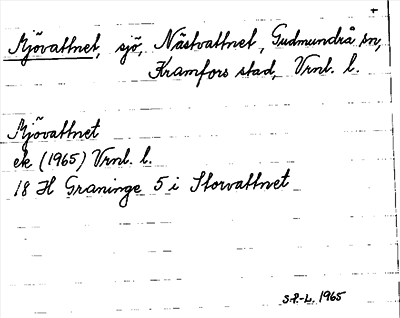 Mjövattnet, sjö, Nästvattnet, Gudmundrå sn,
Kramfors stad, Vrnl. l.
Mjövattnet
ek (1965) Vrnl. l.
18 H Graninge 5 i Storvattnet
S.P.-L. 1965